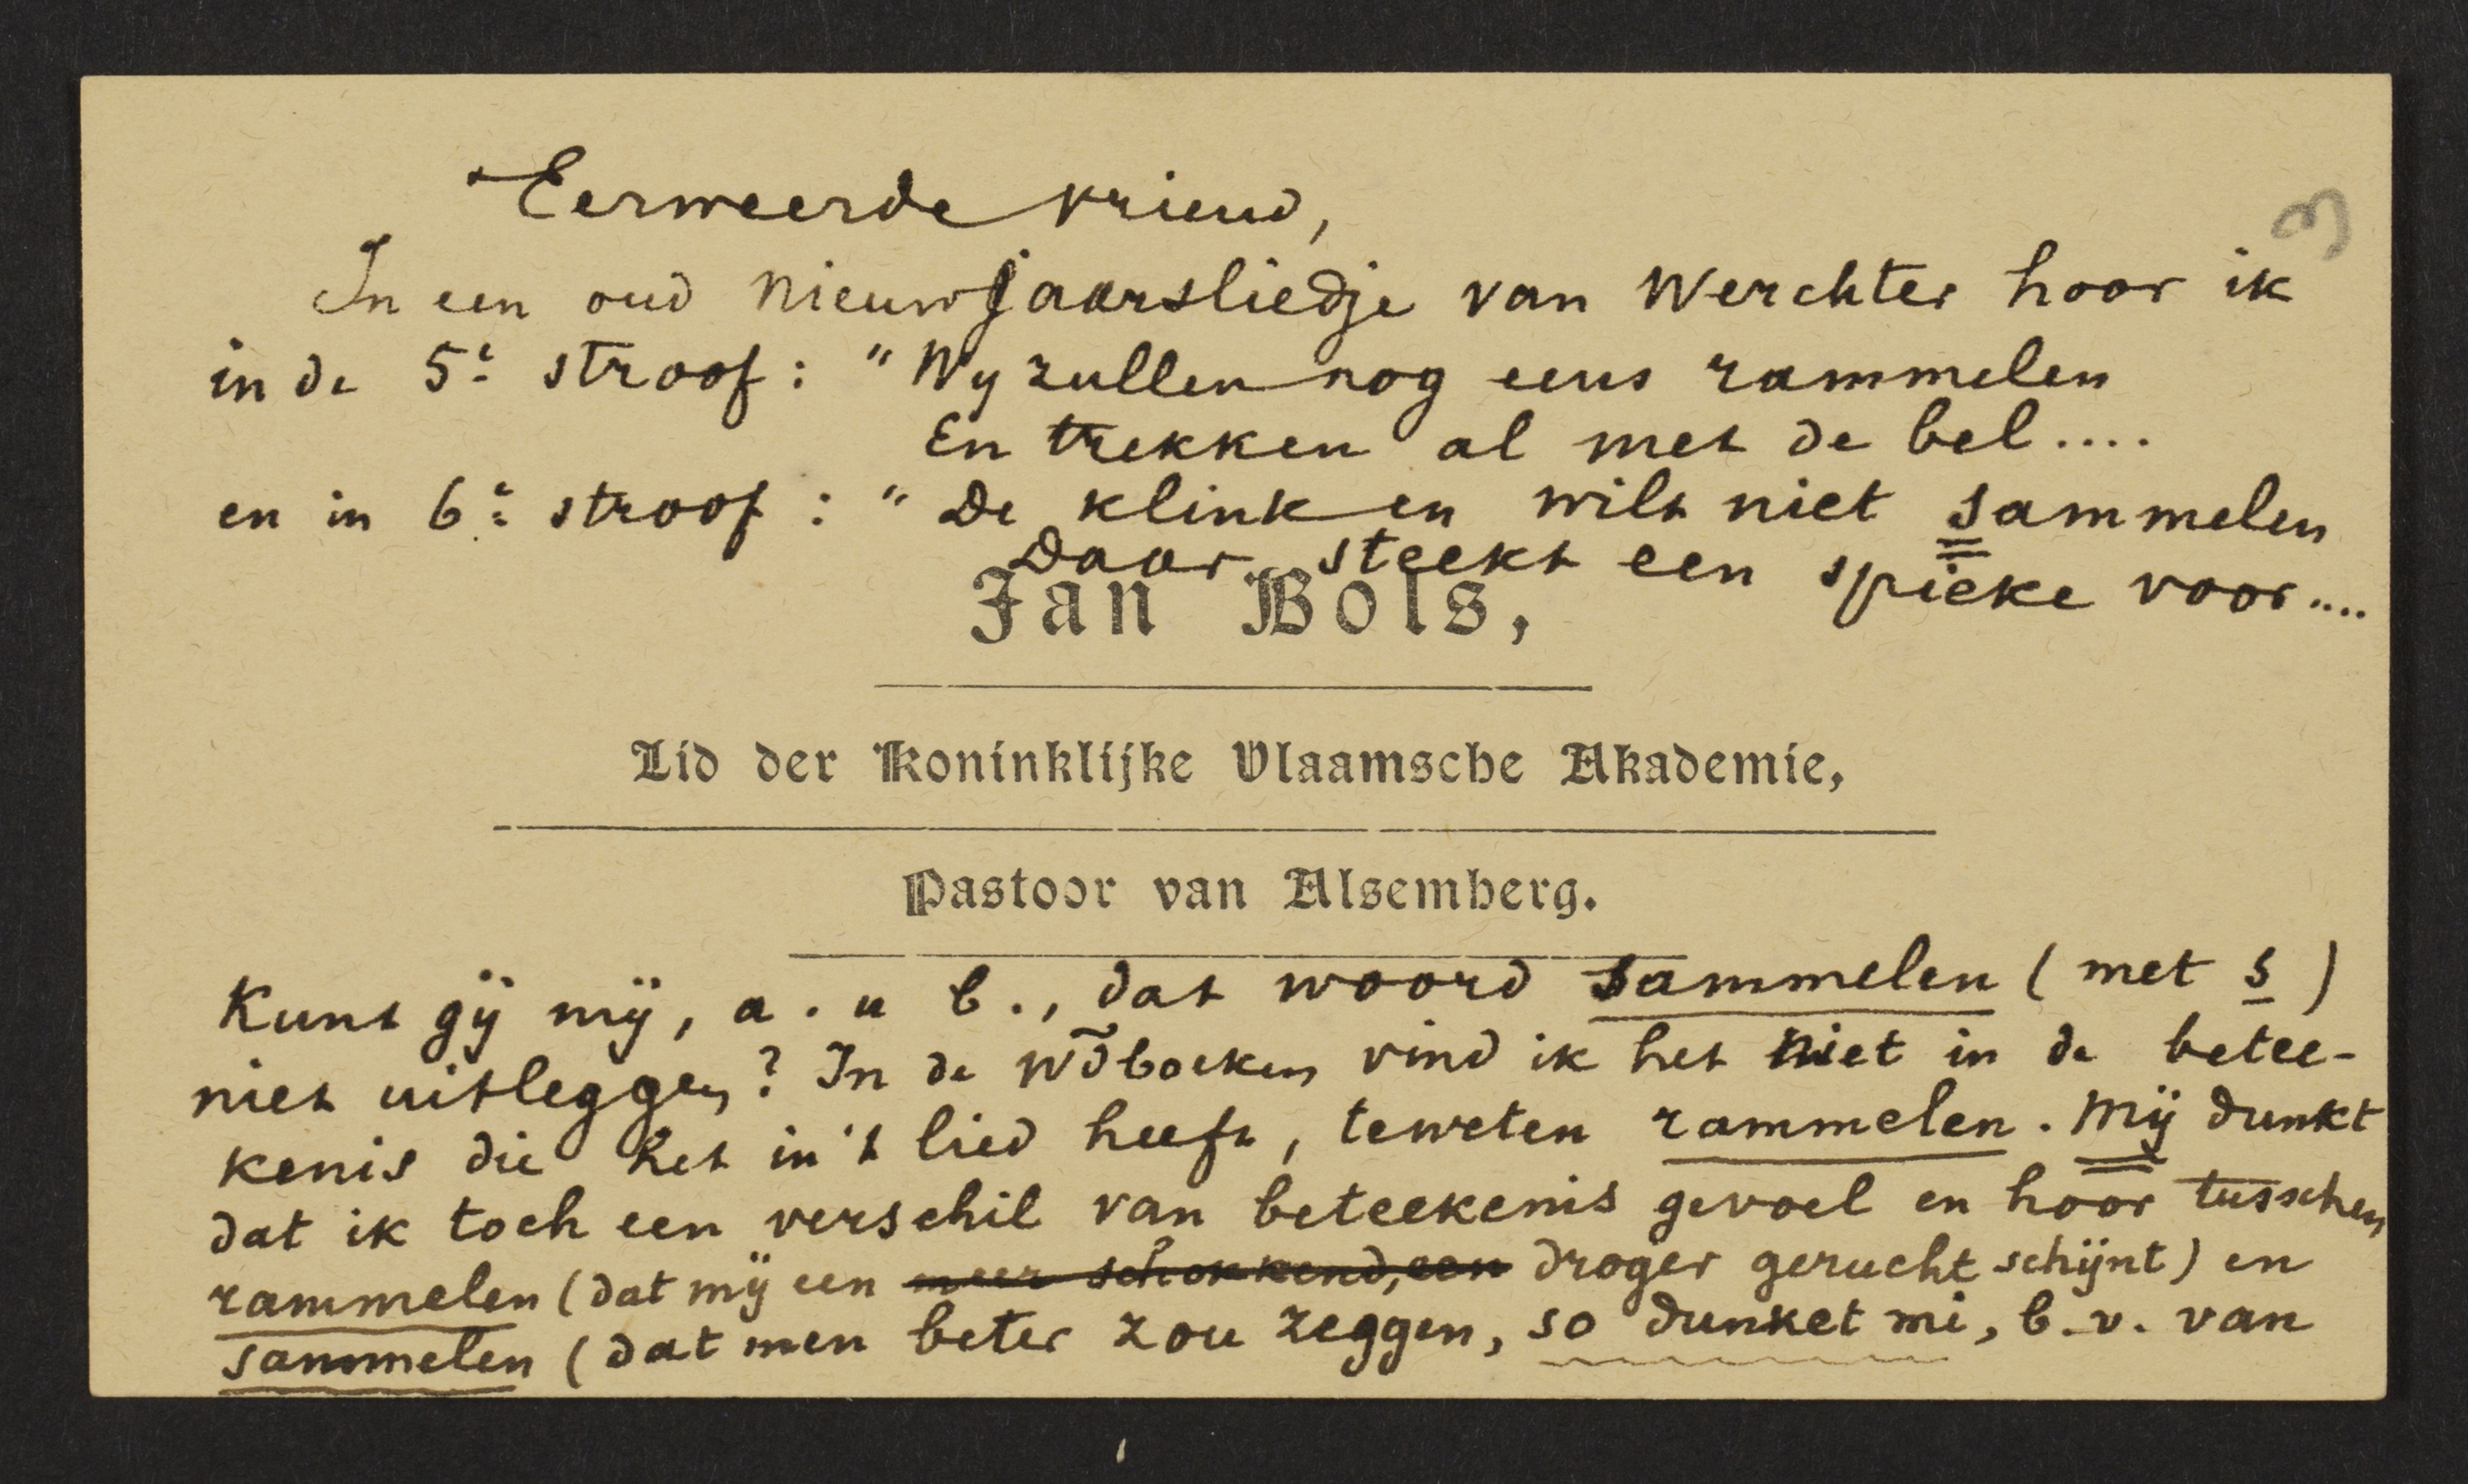 Eerweerde vriend,
3
In een oud Nieuwjaarsliedje van Werchter hoor ik
in de 5e stroof : "Wy zullen nog eens rammelen
En trekken al met de bel....
en in 6e stroof : "De klink en wilt niet sammelen
Daar steekt een spieke voor....
Jan Bols,
Lid der Koninklijke Vlaamsche Akademie,
Pastoor van Alsemberg.
Kunt gij mij, a. u b., dat woord sammelen (met s)
niet uitleggen? In de wdboeken vind ik het niet in de betee-
kenis die het in 't lied heeft, teweten rammelen. Mij dunkt
dat ik toch een verschil van beteekenis gevoel en hoor tusschen
rammelen (dat mij een meer schokkend, een droger gerucht schijnt) en
sammelen (dat men beter zou zeggen, so dunket mi, b.v. van